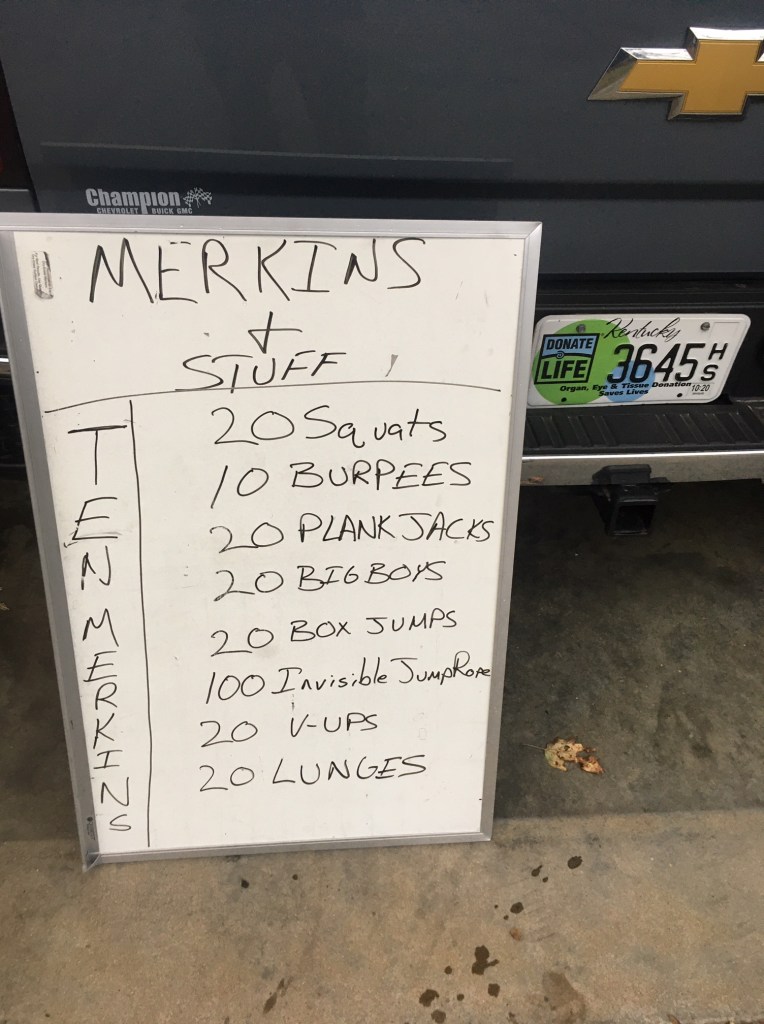 Champion
CHEVROLET BUICK GMC
MERKINS
+
STUFF
TEN MERKINS
20 Squats
10 BURPEES
20 PLANK JACKS
20 BIG BOYS
20 BOX JUMPS
100 Invisible JUMP ROPE
20 V-UPS
20 LUNGES
Kentucky
DONATE
LIFE
3645 HS
Organ, Eye & Tissue Donation
Saves Lives
10-20